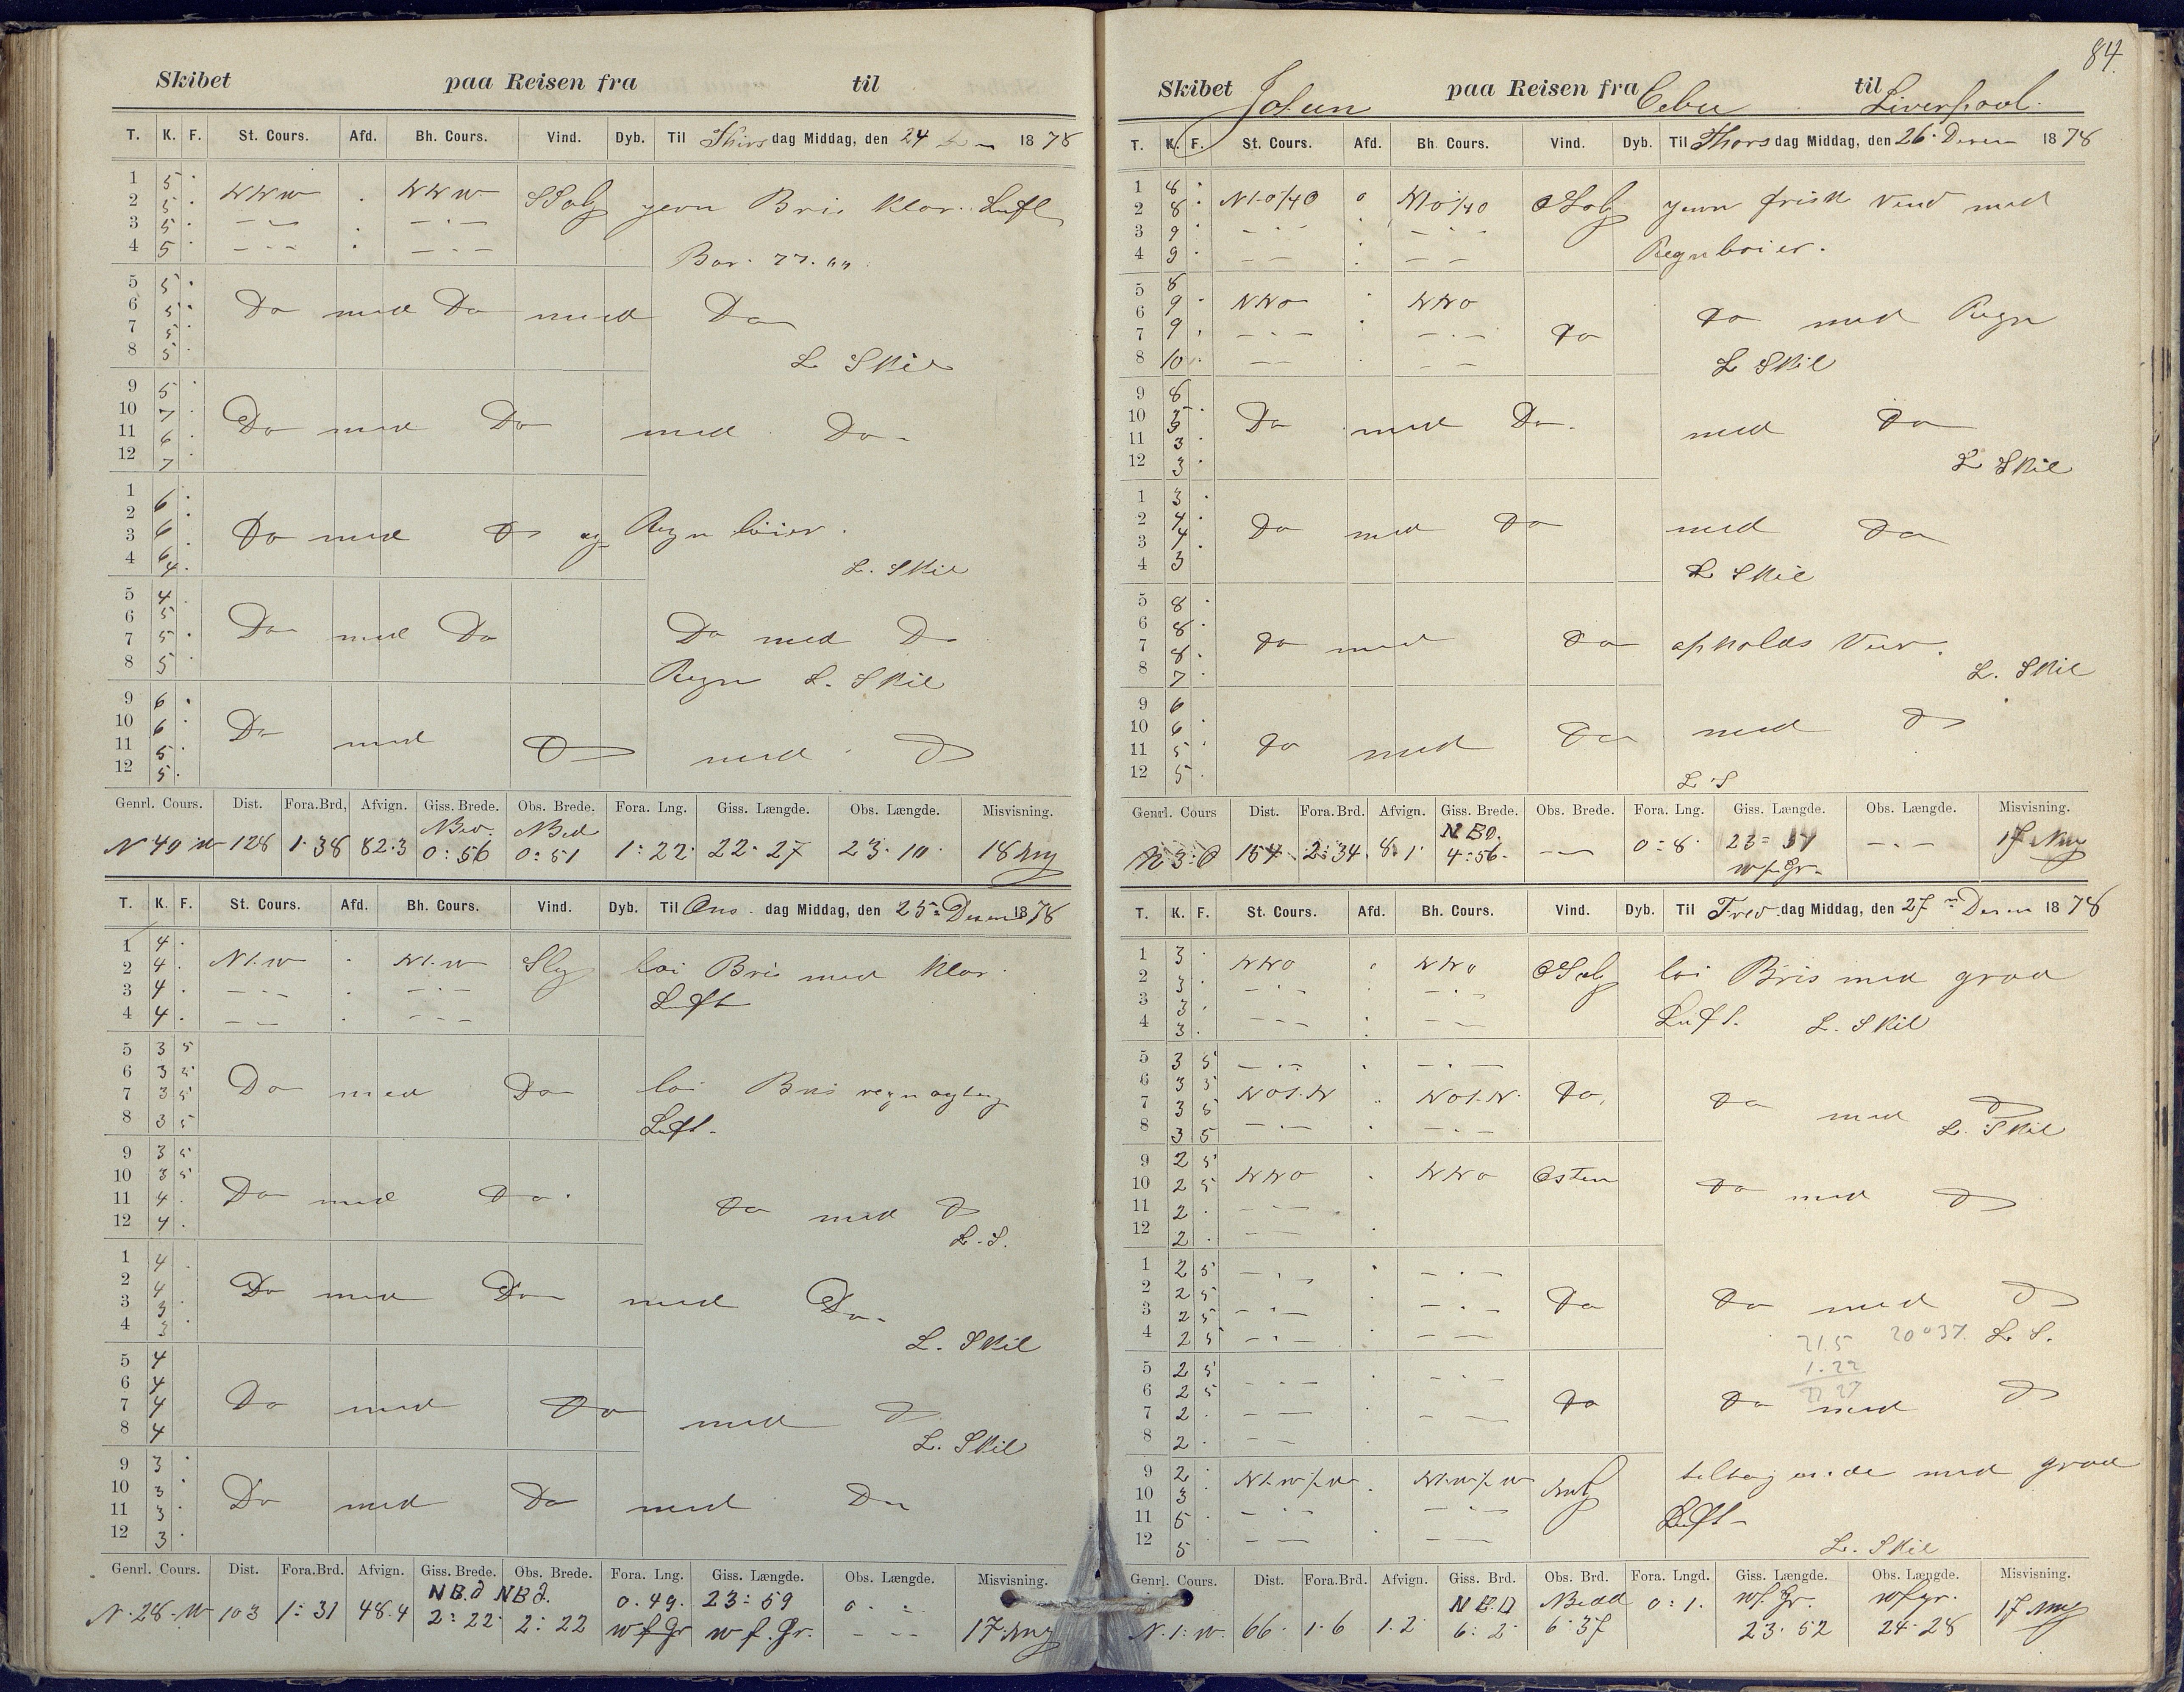 Skibet paa Reisen fra til
T. K. F. St. Cours. Afd. Bh. Cours. Vind. Dyb. Til Thirsdag Middag, den 24 1878
1 5 NNW NNW SSolg jevn Bris Klar Luft
2 5
3 5
4 5 Bar. 77.
5 5
6 5 Do med Do med Do
7 5
8 5 L Skil
9 5
10 7 Do med Do med Do
11 6
12 7
1 6
2
3 6 Do med Do og Regn böier.
4 6 4 L. Skil
5 4
6 5 Do med Do Do med Do
7 5
8 5 Regn L. Skil
9 6
10 6 Do med Do med Do
11 5
12 5
Genrl. Cours. Dist. Fora.Brd. Afvign. Giss. Brede. Obs. Brede. Fora. Lng. Giss. Længde. Obs. Længde. Misvisning.
N 40 W 128 1:38 82.3 0:56 0:51 1:22 22:27 23.10 18
T. K. F. St. Cours. Afd. Bh. Cours. Vind. Dyb. Til Ons dag Middag, den 25 Decem 1878
1 4
2 4 Nt.W Nt.W Slg löi Bris med Klar
3 4 Luft
4 4
5 3 5
6 3 5 Do med Do löi Bris regn og
7 3 5
8 3 5 Luft
9 3 5
10 3 5
11 4 Do med Do Do med Do
12 4 L.S.
1 4
2 4 Do med Do med Do
3 3
4 3 L. Skil
5 4
6 4
7 4 Do med Do med Do
8 4 L. Skil
9 3
10 3 Do med Do med Do
11 3
12 3
Genrl. Cours. Dist. Fora.Brd. Afvign. Giss. Brede. Obs. Brede. Fora. Lng. Giss. Længde. Obs. Længde. Misvisning.
NB.d NBd. 0.49. 23:59
N.28.W 103 1:31 48.4 2:22 2:22 W f Gr W f. Gr. 17
84.
Skibet Jotun paa Reisen fra Cebu til Liverpool.
T. K. F. St. Cours. Afd. Bh. Cours. Vind. Dyb. Til Thorsdag Middag, den 26. Decem 1878
1 8
2 8 Nt.O½O Nt.O½O OSolg jevn frisk Vind med
3 9
4 9 Regnboier.
5 8
6 9 NNO NNO Do med Regn
7 9 Do
8 10 L Skil
9 8
10 5 Do med Do med Do
11 3
12 3 L Skil
1 3
2 4 Do med Do med Do
3 4
4 3 L Skil
5 8
6 8
7 8 Do med Do opholds Veir.
8 7 L. Skil
9 6
10 6 Do med Do med Do
11 5
12 5 L S
Genrl. Cours Dist. Fora.Brd. Afvign. Giss. Brede. Obs. Brede. Fora. Lng. Giss. Længde. Obs. Længde. Misvisning.
N B0.
N 3 O 154 2:34 8.1 4:56 0:8 23= 17
W f. Gr.
T. K. F. St. Cours. Afd. Bh. Cours. Vind. Dyb. Til Freddag Middag, den 27 Decem 1878
1 3 NNO NNO OSolg löi Bris med graa
2 3
3 3 Luft. L. Skil
4 3
5 3 5
6 3 5
7 3 5 NOt.N NOt.N Do Do med Do
8 3 5 L. Skil
9 2 5
10 2 5 NNO NNO Osten Do med Do
11 2
12 2
1 2 5
2 2 5 Do Do med Do
3 2 5
4 2 5 21.5 20°37 L. S.
5 2 5 1.22
6 2 5 22 27
7 2 Do Do med Do
8 2
9 2 tiltagende med graa
10 3
11 5 Luft
12 5 L. Skil
Genrl. Cours. Dist. Fora.Brd. Afvign. Giss. Brd. Obs. Brd. Fora. Lngd. Giss. Længde. Obs. Længde. Misvisning.
W f. Gr. W f gr.
N. 1. W. 66 1.6 1.2 6:2 6:37 0:1. 23.52 24.28 17